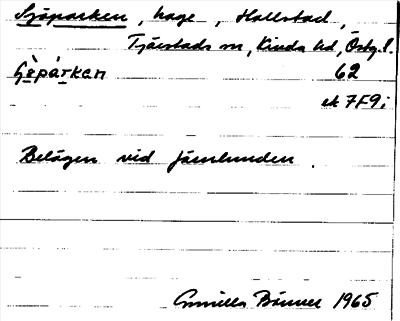 Sjöparken, hage, Hallstad,
Tjärstads sn, Kinda hd, Östg.l.
62
ek 7F9i
Belägen vid Järnlunden.
Gunilla Bänner 1965